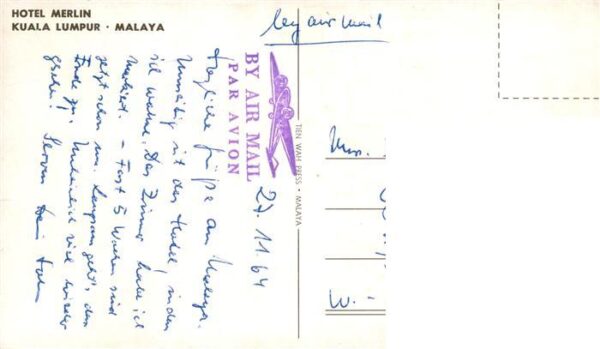 HOTEL MERLIN
KUALA LUMPUR · MALAYA
by air mail
BY AIR MAIL
PAR AVION
TIEN WAH PRESS · MALAYA
27.11.64
Herzliche Grüße aus Malaya.
Umseitig ist das Hotel, in dem
ich wohne. Das Zimmer habe ich
markiert. – Fast 5 Wochen sind
jetzt schon um. Langsam geht's dem
Ende zu. viel wieder
gesehen! Dein
W. -